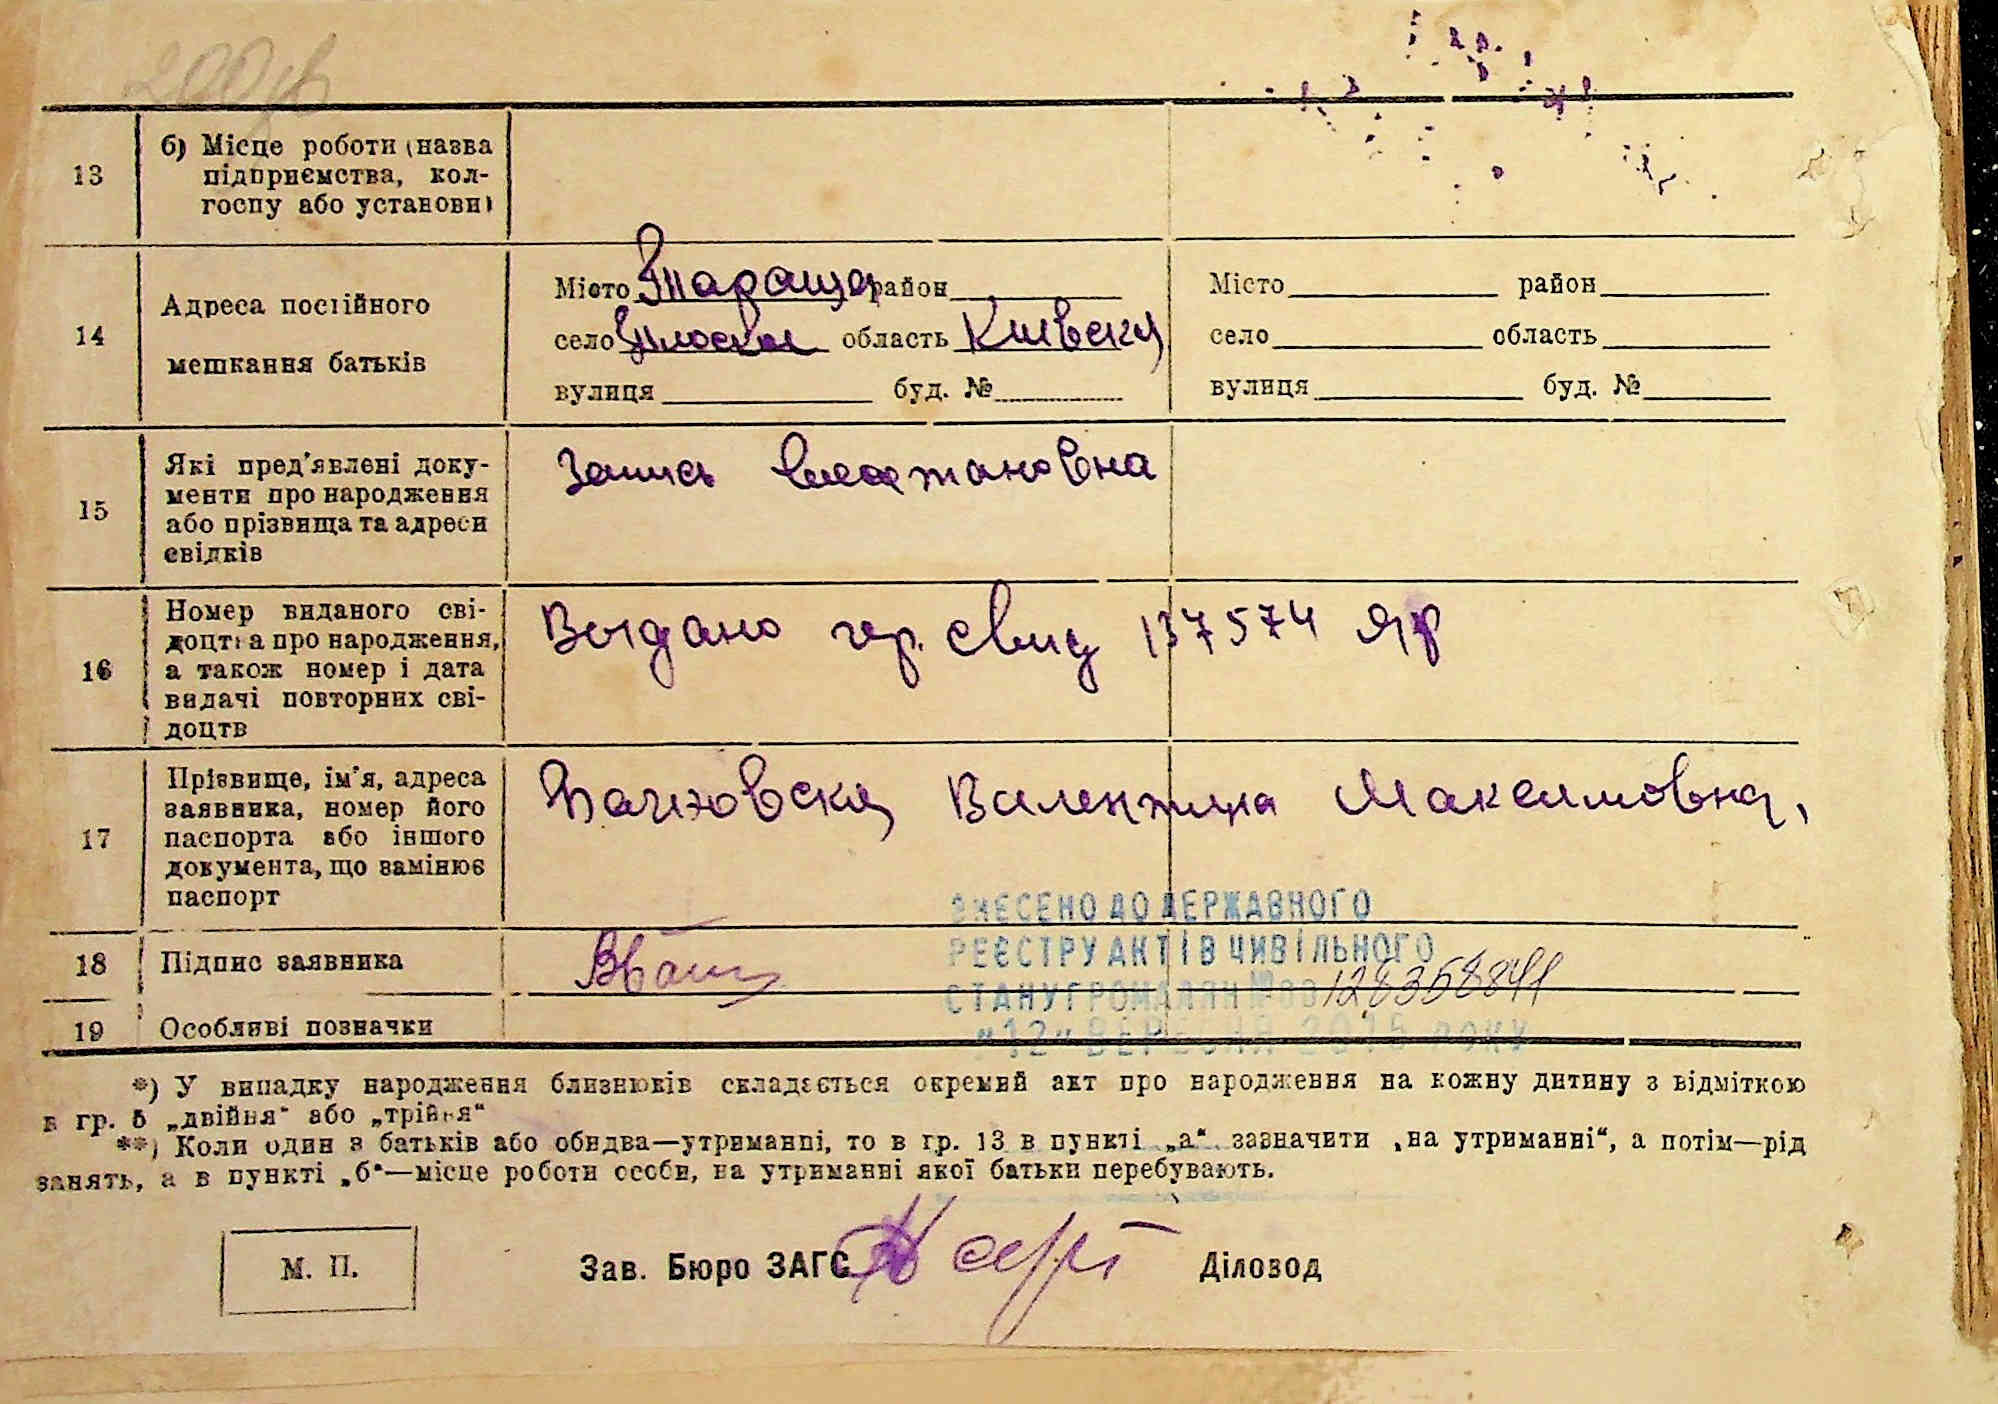 13
б) Місце роботи (назва
підприємства, кол-
госпу або установи)
14
Адреса постійного
мешкання батьків
Місто Тараща район
село Плоское область Киевская
вулиця буд. №
Місто район
село область
вулиця буд. №
15
Які пред'явлені доку-
менти про народження
або прізвища та адреси
свідків
Запись
16
Номер виданого сві-
доцтва про народження,
а також номер і дата
видачі повторних сві-
доцтв
Выдано гер. свид 137574
17
Прізвище, ім'я, адреса
заявника, номер його
паспорта або іншого
документа, що замінює
паспорт
Валентина Максимовна,
18
Підпис заявника
19
Особливі позначки
ВНЕСЕНО ДО ДЕРЖАВНОГО
РЕЄСТРУ АКТІВ ЦИВІЛЬНОГО
СТАНУ ГРОМАДЯН № 00128358841
"12" ВЕРЕСНЯ 2015 РОКУ
*) У випадку народження близнюків складається окремий акт про народження на кожну дитину з відміткою
в гр. 5 „двійня" або „трійня"
**) Коли один з батьків або обидва—утриманці, то в гр. 13 в пункті „а" зазначити „на утриманні", а потім—рід
занять, а в пункті „б"—місце роботи особи, на утриманні якої батьки перебувають.
М. П.
Зав. Бюро ЗАГС
Діловод